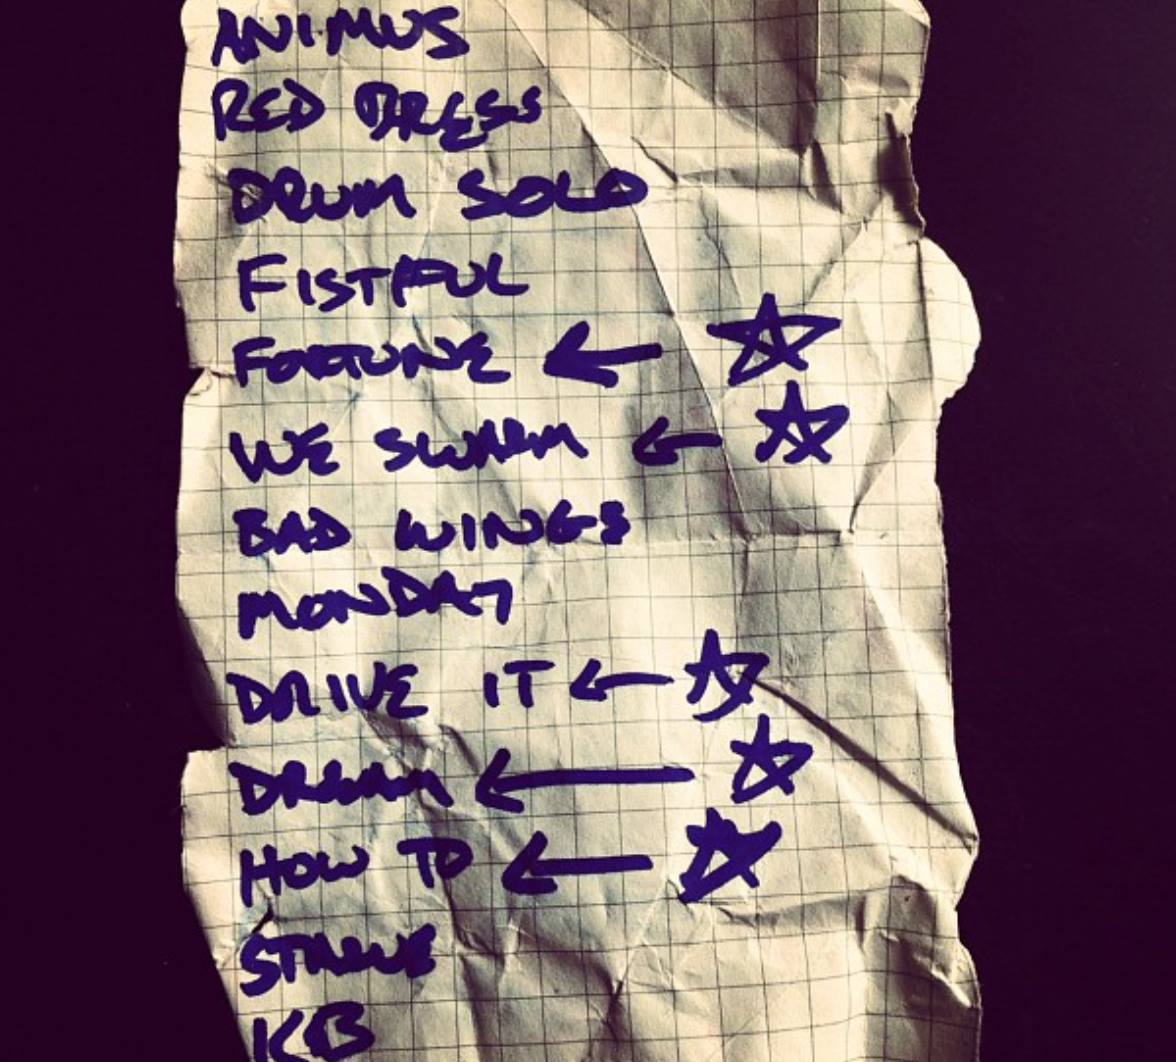 ANIMUS
RED DRESS
DRUM SOLO
FISTFUL
FORTUNE ← ☆
WE SWARM ← ☆
BAD WINGS
MONDAY
DRIVE IT ← ☆
DREAM ← ☆
HOW TO ← ☆
KB